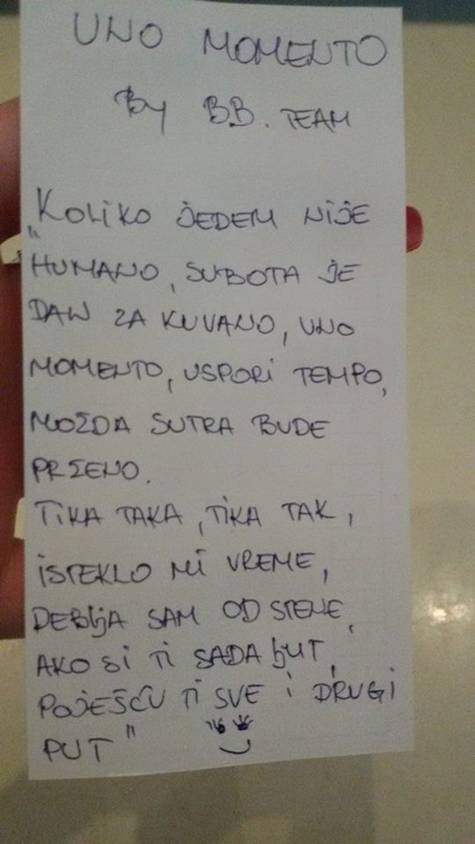 UNO MOMENTO
By BB. TEAM
"KOLIKO JEDEM NIJE
HUMANO, SUBOTA JE
DAN ZA KUVANO, UNO
MOMENTO, USPORI TEMPO,
MOŽDA SUTRA BUDE
PRŽENO.
TIKA TAKA, TIKA TAK,
ISTEKLO MI VREME,
DEBLJA SAM OD STENE,
AKO SI TI SADA LJUT,
POJEŠĆU TI SVE I DRUGI
PUT"